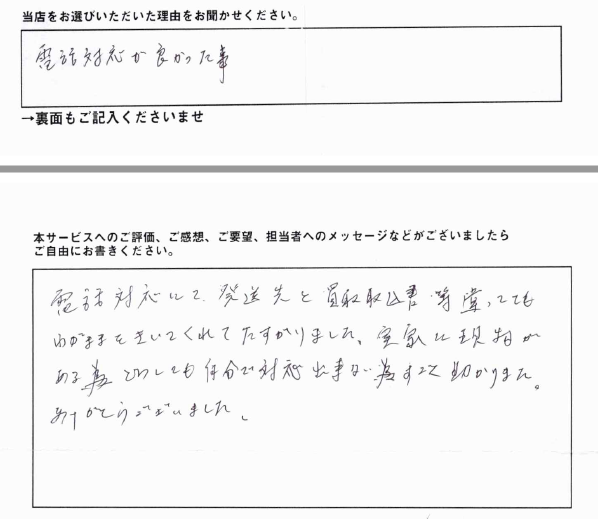 当店をお選びいただいた理由をお聞かせください。
電話対応が良かった事
→裏面もご記入くださいませ
本サービスへのご評価、ご感想、ご要望、担当者へのメッセージなどがございましたら
ご自由にお書きください。
電話対応にて、発送先と買取取込書等違ってても
わがままをきいてくれてたすかりました、実家に現物が
ある為どうしても自分で対応出来ない為すごく助かりました。
ありがとうございました。